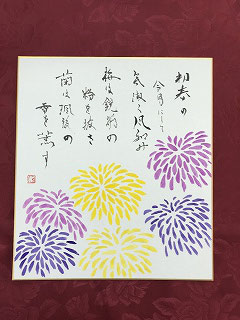 初春の
令月にして
気淑く風和み
梅は鏡前の
粉を披き
蘭は珮後の
香を薫す